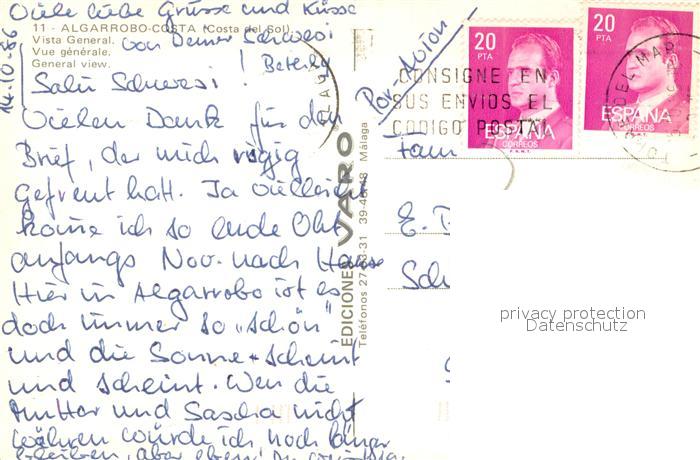 Viele liebe Grüsse und Küsse
von Deiner Schwesi
11 - ALGARROBO-COSTA (Costa del Sol)
Vista General.
Vue générale.
General view.
14.10.86
! Beterly
Salü Schwesi!
Vielen Dank für den
Brief, der mich riesig
gefreut hatt. Ja vielleicht
komme ich so ende Okt
anfangs Nov. nach Hause
Hier in Algarrobo ist es
doch immer so "schön"
und die Sonne scheint
und scheint. Wen die
Mutter und Sascha nicht
währen würde ich noch länger
bleiben, aber eben!
EDICIONES VARO
Teléfonos 27-33-31 39-46-48 Málaga
Por Avion
CONSIGNE EN
SUS ENVIOS EL
CODIGO POSTAL
20
PTA
ESPAÑA
CORREOS
F.N.M.T.
20
PTA
ESPAÑA
CORREOS
F.N.M.T.
DEL MAR
Fam
E.
Sch
privacy protection
Datenschutz